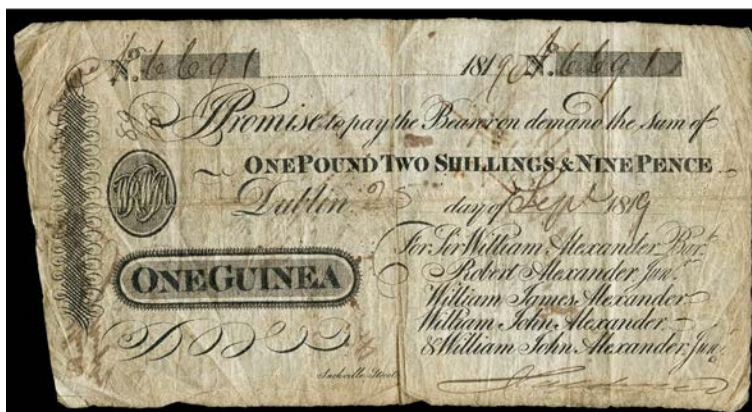 No. 6691 1819 No. 6691
I Promise to pay the Bearer on demand the sum of
ONE POUND TWO SHILLINGS & NINE PENCE
Dublin 25 day of Sept 1819
For Sir William Alexander Bart.
ONE GUINEA
Robert Alexander Junr.
William James Alexander
William John Alexander
& William John Alexander Junr.
Sackville Street